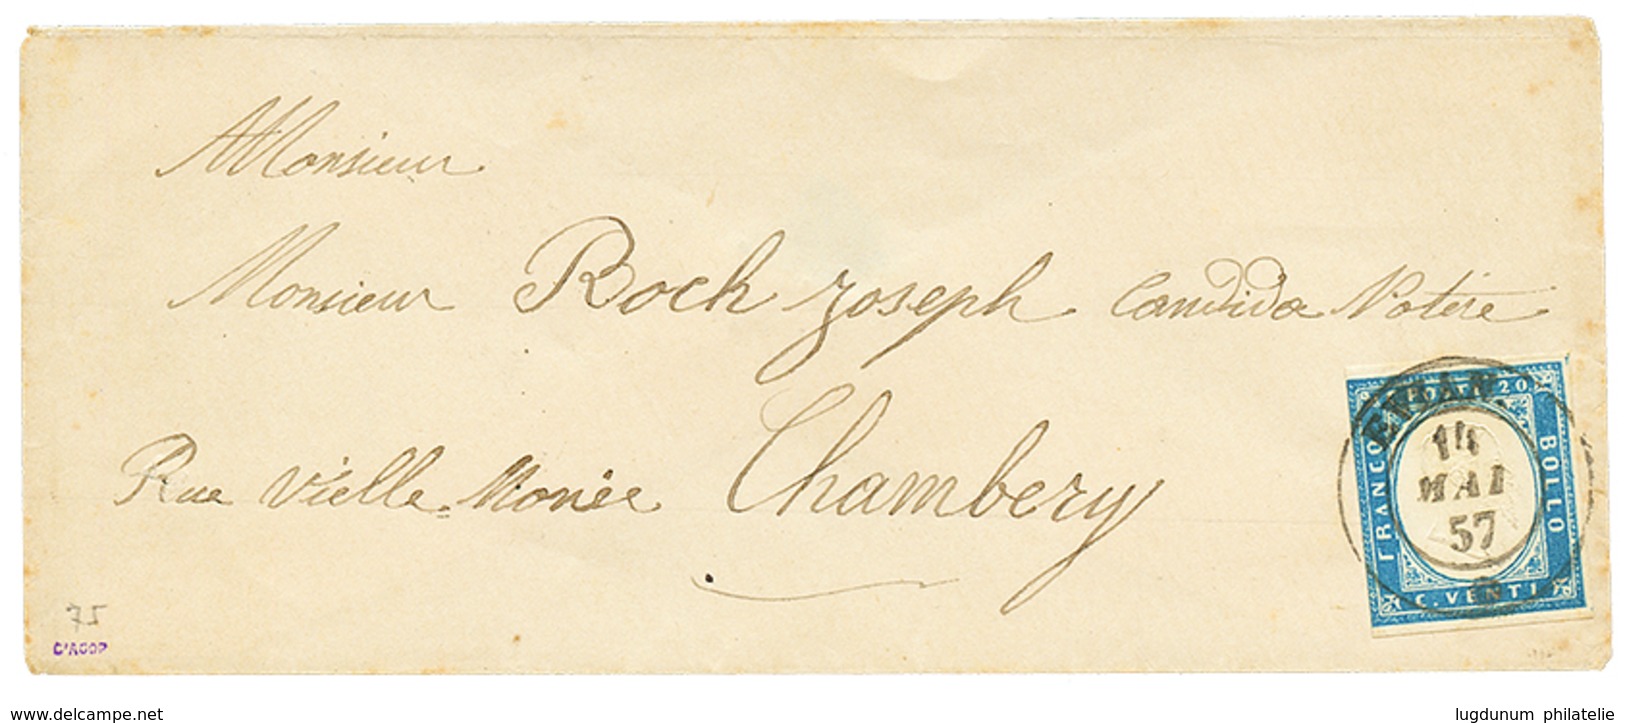 Monsieur
Monsieur Roch Joseph Candida Notére
Rue Vielle Monée Chambery
POSTE 20
FRANCO
BOLLO
C. VENTI
EVIAN.
14
MAI
57
75
www.delcampe.net
lugdunum philatelie